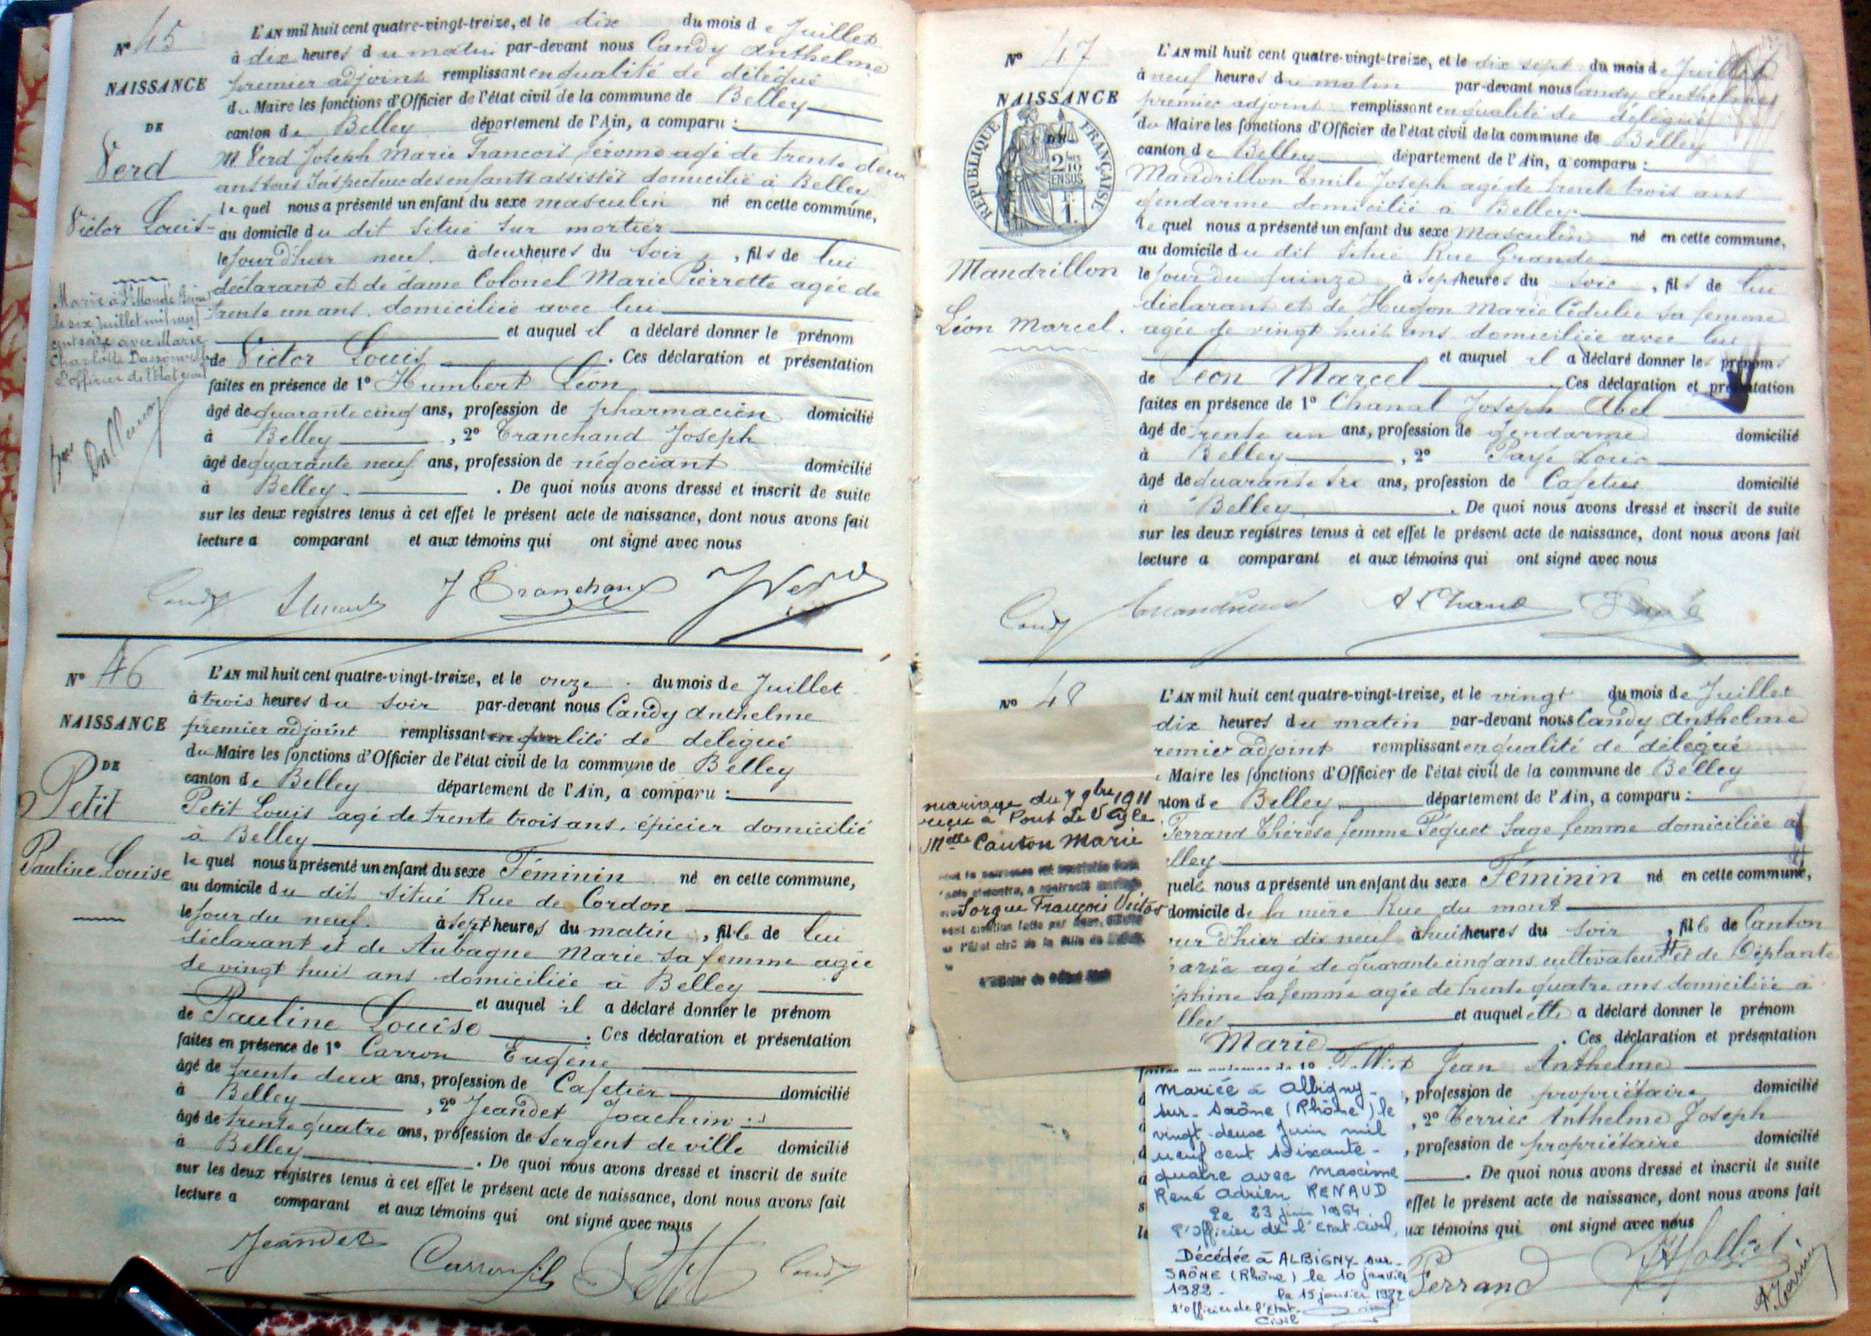 N° 45
NAISSANCE
DE
Verd
Victor Louis
Marié à St Mandé
le six Juillet mil neuf
cent seize avec Marie
Charlotte
L'officier de l'état civil
L'AN mil huit cent quatre-vingt-treize, et le dix du mois de Juillet
à dix heures du matin par-devant nous Candy Anthelme
premier adjoint remplissant en qualité de délégué
du Maire les fonctions d'Officier de l'état civil de la commune de Belley
canton de Belley département de l'Ain, a comparu :
M. Verd Joseph Marie François Jérome agé de trente deux
ans sous Inspecteur des enfants assistés domicilié à Belley
lequel nous a présenté un enfant du sexe masculin né en cette commune,
au domicile du dit situé sur mortier
le jour d'hier neuf à deux heures du soir, fils de lui
déclarant et de dame Colonel Marie Pierrette agée de
trente un ans domiciliée avec lui
et auquel il a déclaré donner le prénom
de Victor Louis. Ces déclaration et présentation
faites en présence de 1° Humbert Léon
âgé de quarante cinq ans, profession de pharmacien domicilié
à Belley, 2° Tranchand Joseph
âgé de quarante neuf ans, profession de négociant domicilié
à Belley. De quoi nous avons dressé et inscrit de suite
sur les deux registres tenus à cet effet le présent acte de naissance, dont nous avons fait
lecture a comparant et aux témoins qui ont signé avec nous
Candy J Tranchand J Verd
N° 46
NAISSANCE
DE
Petit
Pauline Louise
L'AN mil huit cent quatre-vingt-treize, et le onze du mois de Juillet
à trois heures du soir par-devant nous Candy Anthelme
premier adjoint remplissant en qualité de délégué
du Maire les fonctions d'Officier de l'état civil de la commune de Belley
canton de Belley département de l'Ain, a comparu :
Petit Louis agé de trente trois ans, épicier domicilié
à Belley
lequel nous a présenté un enfant du sexe Féminin né en cette commune,
au domicile du dit situé Rue de Cordon
le jour du neuf à sept heures du matin, fille de lui
déclarant et de Aubagne Marie sa femme agée
de vingt huit ans domiciliée à Belley
et auquel il a déclaré donner le prénom
de Pauline Louise. Ces déclaration et présentation
faites en présence de 1° Carron Eugène
âgé de trente deux ans, profession de Cafetier domicilié
à Belley, 2° Jeandet Joachim
âgé de trente quatre ans, profession de Sergent de ville domicilié
à Belley. De quoi nous avons dressé et inscrit de suite
sur les deux registres tenus à cet effet le présent acte de naissance, dont nous avons fait
lecture a comparant et aux témoins qui ont signé avec nous
Jeandet Carron fils Petit Candy
N° 47
NAISSANCE
DE
RÉPUBLIQUE FRANÇAISE
Mandrillon
Léon Marcel.
L'AN mil huit cent quatre-vingt-treize, et le dix sept du mois de Juillet
à neuf heures du matin par-devant nous Candy Anthelme
premier adjoint remplissant en qualité de délégué
du Maire les fonctions d'Officier de l'état civil de la commune de Belley
canton de Belley département de l'Ain, a comparu :
Mandrillon Emile Joseph agé de trente trois ans
gendarme domicilié à Belley
lequel nous a présenté un enfant du sexe Masculin né en cette commune,
au domicile du dit situé Rue Grande
le jour du quinze à sept heures du soir, fils de lui
déclarant et de Hugon Marie Cédulie sa femme
agée de vingt huit ans domiciliée avec lui
et auquel il a déclaré donner les prénoms
de Léon Marcel. Ces déclaration et présentation
faites en présence de 1° Chanal Joseph Abel
âgé de trente un ans, profession de gendarme domicilié
à Belley, 2° Payé Louis
âgé de quarante six ans, profession de Cafetier domicilié
à Belley. De quoi nous avons dressé et inscrit de suite
sur les deux registres tenus à cet effet le présent acte de naissance, dont nous avons fait
lecture a comparant et aux témoins qui ont signé avec nous
Candy Mandrillon
N° 48
L'AN mil huit cent quatre-vingt-treize, et le vingt du mois de Juillet
dix heures du matin par-devant nous Candy Anthelme
premier adjoint remplissant en qualité de délégué
Maire les fonctions d'Officier de l'état civil de la commune de Belley
canton de Belley département de l'Ain, a comparu :
Ferrand Thérèse femme Péquet Sage femme domiciliée à
Belley
quelle nous a présenté un enfant du sexe Féminin né en cette commune,
domicile de la mère Rue du mont
jour d'hier dix neuf à huit heures du soir, fille de Canton
Marie agé de quarante cinq ans cultivateur et de Déplante
sa femme agée de trente quatre ans domiciliée à
Belley et auquel elle a déclaré donner le prénom
Marie. Ces déclaration et présentation
Jean Anthelme
, profession de propriétaire domicilié
, 2° Terrier Anthelme Joseph
, profession de propriétaire domicilié
. De quoi nous avons dressé et inscrit de suite
effet le présent acte de naissance, dont nous avons fait
aux témoins qui ont signé avec nous
Ferrand
mariage du 7 9bre 1911
reçu à Pont de Veyle
Mlle Canton Marie
Sorgue François Victor
Mariée à Albigny-
sur-Saône (Rhône) le
vingt-deux Juin mil
neuf cent soixante-
quatre avec Maxime
René Adrien RENAUD
Le 23 juin 1964
L'officier de l'Etat civil,
Décédée à ALBIGNY-sur-
SAÔNE (Rhône) le 10 janvier
1982. le 15 janvier 1982
l'officier de l'Etat
Civil